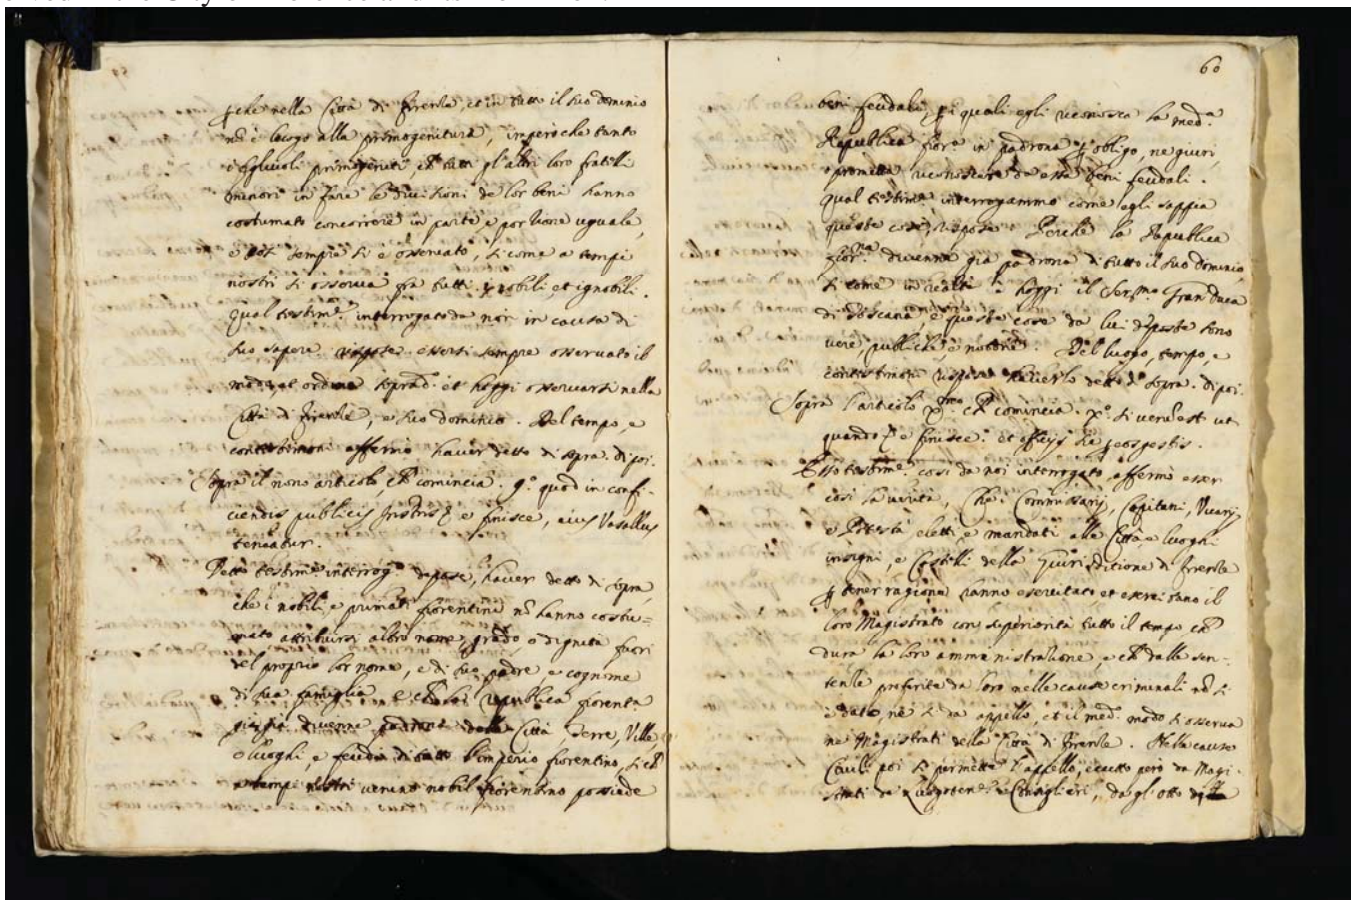 che nella Città di Firenze, et in tutto il suo dominio
nō è luogo alla primogenitura, imperoche tanto
i figliuoli primogeniti, ch̃ tutti gl'altri loro fratelli
minori in fare le divisioni de lor beni hanno
costumato concorrere in parte e portione uguale,
e così sempre si è osservato, si come a tempi
nostri si osserva fra tutti nobili, et ignobili.
Qual testim.º interrogato da noi in causa di
suo sapere rispose essersi sempre osservato il
modo, et ordine soprad.º et hoggi osservarsi nella
Città di Firenze, e suo dominio. Del tempo, e
contestimoni affermò haver detto di sopra. di poi.
Sopra il nono articolo, ch̃ comincia. 9.º quod in confi-
ciendis publicis Instris e finisce, eius Vasallus
teneatur.
Detto testim.º interrog.º depose, haver detto di sopra
che i nobili, e privati fiorentini nō hanno costu=
mato attribuirsi altro nome, grado, o dignità fuori
del proprio lor nome, e di suo padre, e cognome
di sua famiglia e ch̃ la republica fiorenta
già divenne padrona delle Città, Terre, Ville,
o luoghi e feudi di tutto l'imperio fiorentino, si ch̃
a tempi nostri veruno nobil fiorentino possiede
60
beni feudali, p̱ i quali egli riconosca la med.ª
Republica fior.ª in padrona p̱ obligo, ne giuri,
o prometta riconoscere da essa beni feudali.
qual testim.º interrogammo come egli sappia
queste cose, rispose. Perche la Republica
fior.na divenne gia padrona di tutto il suo dominio,
si come in realtà è hoggi il Ser.mo Gran Duca
di Toscana, e queste cose da lui deposte sono
vere, publiche, e notorie. Del luogo, tempo, e
contestimoni rispose haverlo detto di sopra. di poi.
Sopra l'articolo X.mo ch̃ comincia. X.º si verū est ut
quando e finisce. et officijs sic p̱ eos gestis.
Esso testim.º così da noi interrogato affermò esser
così la verità, che i Commissarij, Capitani, Vicarij
e Potestà eletti, e mandati alle Città, e luoghi
insigni, e Castelli della Giuriditione di Firenze
p̱ tener ragione hanno esercitato et esercitano il
loro Magistrato con superiorità tutto il tempo, ch̃
dura la loro amministratione, e ch̃ dalle sen-
tenze proferite da loro nelle cause criminali nō si
è dato, ne si da appello, et il med.º modo si osserva
ne Magistrati della Città di Firenze. Nelle cause
Civili poi si permette l'appello, eccetto però da Magi-
strati de Consiglieri, da gl'otto di